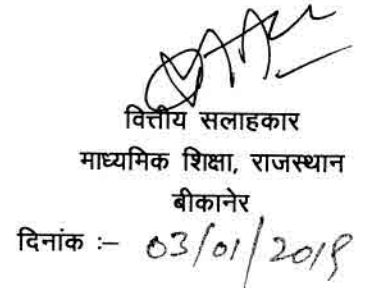 वित्तीय सलाहकार
माध्यमिक शिक्षा, राजस्थान
बीकानेर
दिनांक :– 03/01/2019